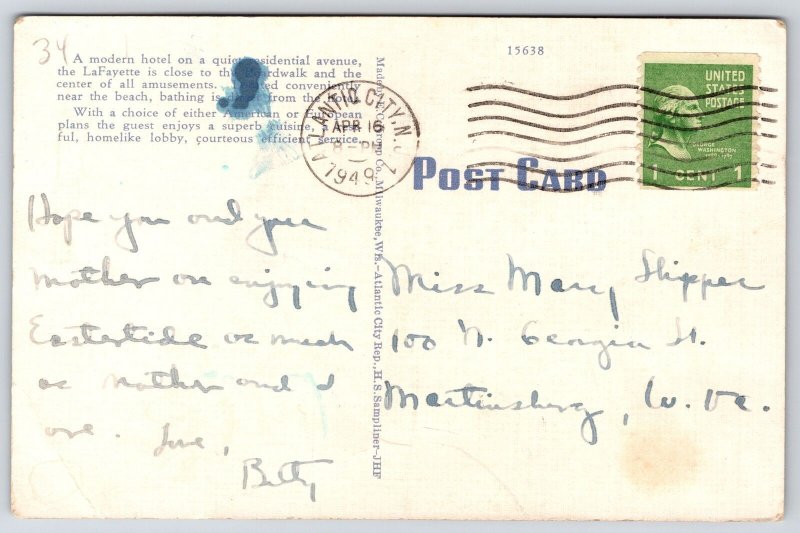 34
A modern hotel on a quiet residential avenue,
the LaFayette is close to the Boardwalk and the
center of all amusements. conveniently
near the beach, bathing is from the hotel.
With a choice of either American or European
plans the guest enjoys a superb cuisine, a
ful, homelike lobby, courteous efficient service.
15638
ATLANTIC CITY, N.J.
APR 16
PM
1949
UNITED
STATES
POSTAGE
GEORGE
WASHINGTON
1 CENT 1
POST CARD
Milwaukee, Wis.—Atlantic City Rep., H. S. Sampliner—JHF
Hope you and your
mother are enjoying
Eastertide as much
as Mother and I
are. Love,
Betty
Miss Mary Shipper
100 N. Georgia St.
Martinsburg, W. Va.